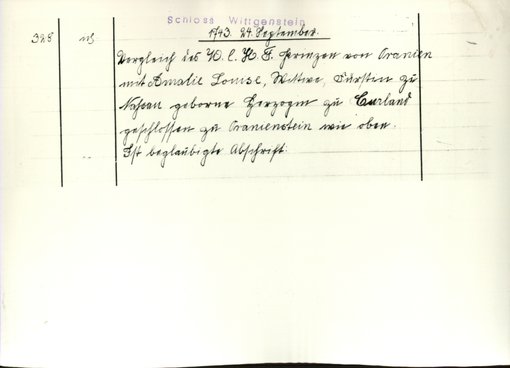 Schloss Wittgenstein
1743. 24. September.
328
Vergleich des W. C. H. F. Prinzen von Oranien
mit Amalie Louise, Wittwe, Fürstin zu
Nassau geborne Herzogin zu Curland
geschlossen zu Oranienstein wie oben.
Ist beglaubigte Abschrift.